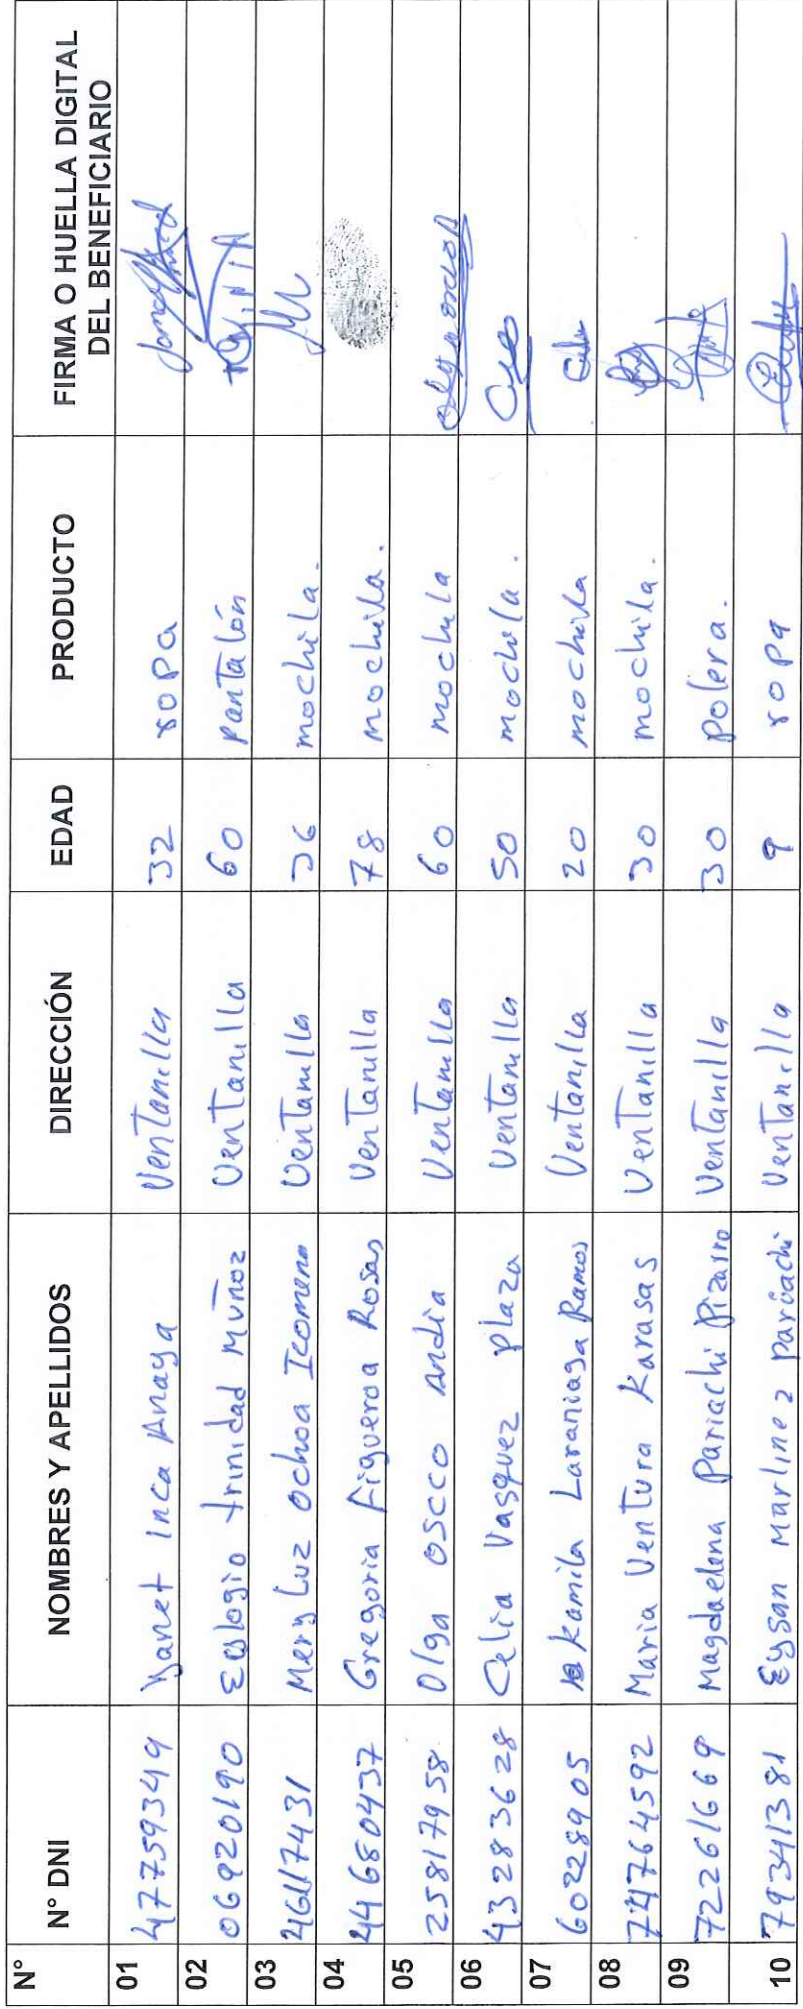 N° N° DNI NOMBRES Y APELLIDOS DIRECCIÓN EDAD PRODUCTO FIRMA O HUELLA DIGITAL
DEL BENEFICIARIO
01 47759349 Yanet Inca Anaya Ventanilla 32 ropa
02 06920190 Eulogio trinidad Muñoz Ventanilla 60 pantalón
03 Mery Luz Ochoa Ventanilla 36 mochila.
04 44680437 Gregoria Figueroa Rosas Ventanilla 78 mochila.
05 25817958 Olga Oscco andia Ventanilla 60 mochila
06 43283628 Celia Vasquez plaza Ventanilla 50 mochila.
07 60228905 Kamila Ramos Ventanilla 20 mochila
08 74764592 Maria Ventura Karasas Ventanilla 30 mochila.
09 72261669 Magdaelena Pariachi Pizarro Ventanilla 30 polera.
10 79341381 Eysan Martinez pariachi Ventanilla 9 ropa